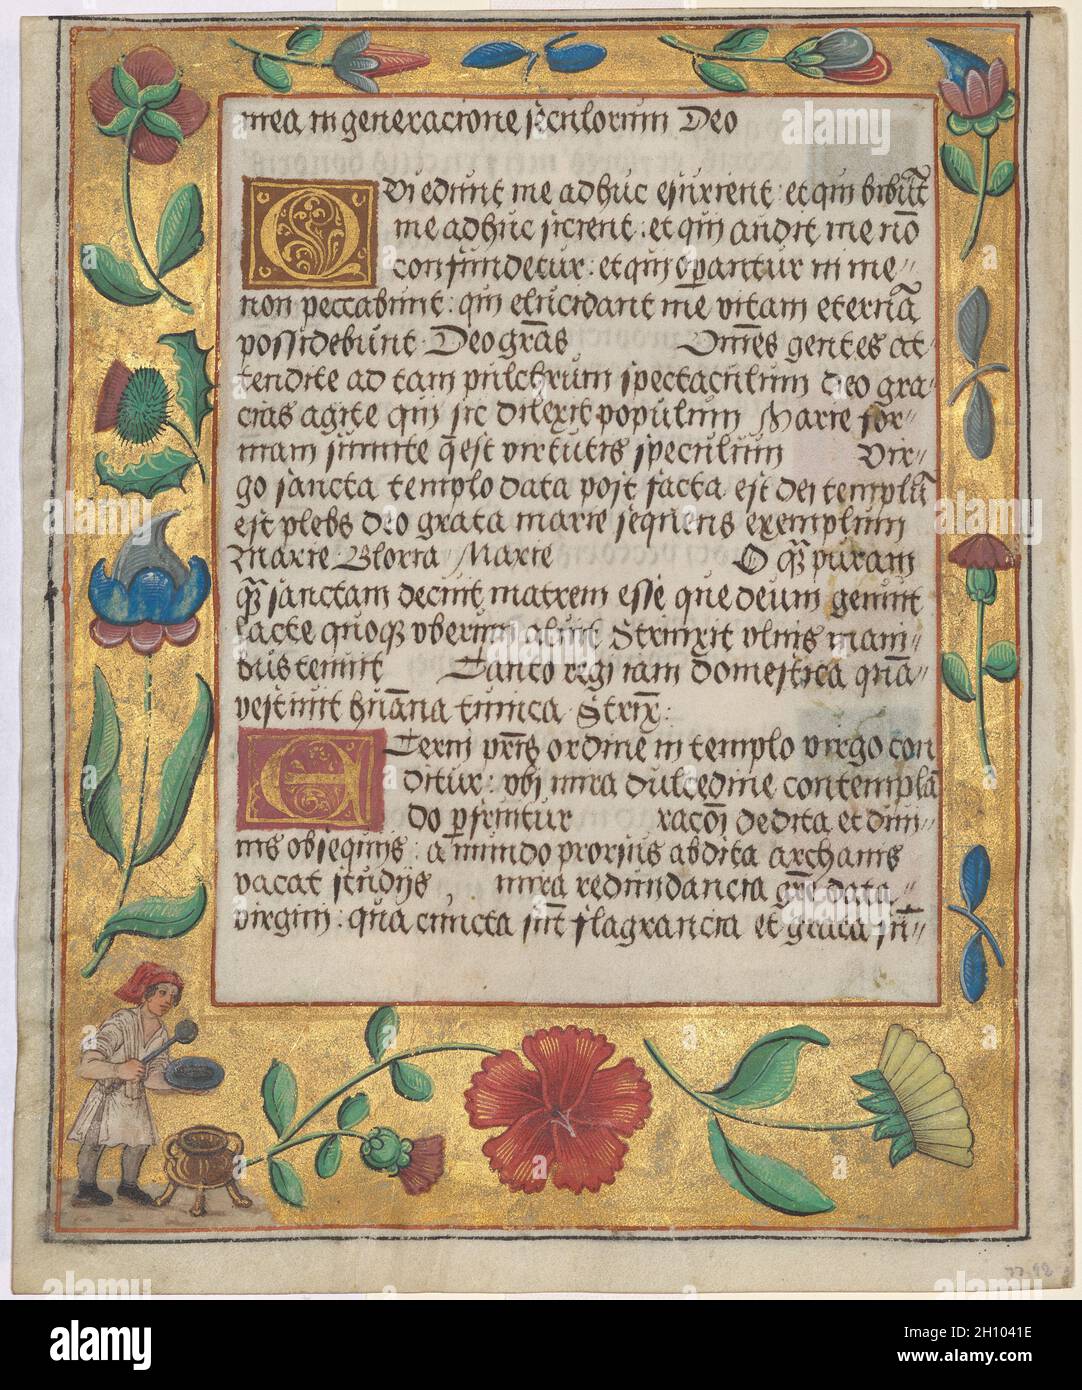 mea in generacione seculorum Deo
Qui edunt me adhuc esurient: et qui bibūt
me adhuc sicient: et qui audit me nō
confundetur: et qui operantur in me
non peccabunt: qui elucidant me vitam eternā
possidebunt Deo gr̄as Om̄es gentes at
tendite ad tam pulchrum spectaculum deo gra
cias agite qui sic dilexit populum Marie for
mam sumite q̄ est virtutis speculum Vir
go sancta templo data post facta est dei templū
est plebs deo grata marie sequens exemplum
Marie Gloria Marie O q̄ puram
q̄ sanctam decuit matrem esse que deum genuit
lacte quoq vberum aluit Strinxit vlnis mani
bus tenuit Tanto regi tam domestica quā
vestiuit hūana tunica Strix:
Eterni pr̄is ordine in templo virgo con
ditur: vbi mira dulcedine contemplā
do perfruitur racōi dedita et diui
nis obsequijs: a mundo prorsus abdita archanis
vacat studijs mira redundancia gr̄e data
virgini: qua cuncta sūt flagrancia et grata
77.92
alamy
Image ID: 2H1041E
www.alamy.com